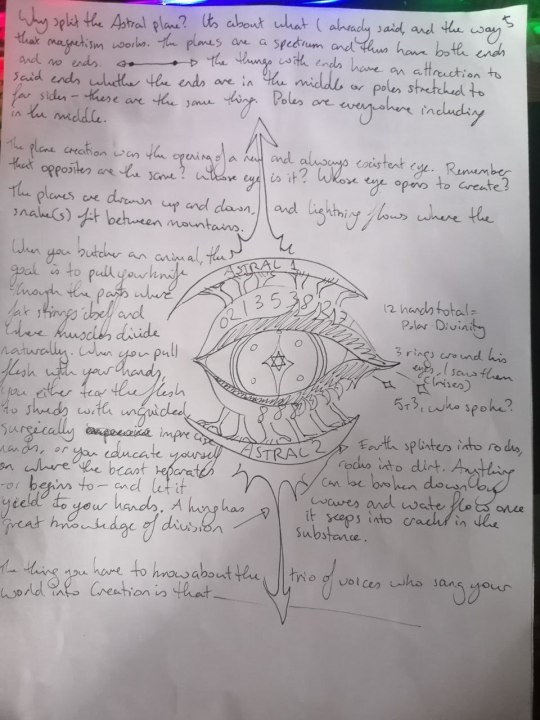 5
Why split the Astral plane? Its about what I already said, and the way
that magnetism works. The planes are a spectrum and thus have both ends
and no ends. The things with ends have an attraction to
said ends whether the ends are in the middle or poles stretched to
far sides - these are the same thing. Poles are everywhere including
in the middle.
The plane creation was the opening of a new and always existent eye. Remember
that opposites are the same? Whose eye is it? Whose eye opens to create?
The planes are drawn up and down, and lightning flows where the
snake(s) fit between mountains.
When you butcher an animal, the
goal is to pull your knife
through the parts where
fat strings itself and
where muscles divide
naturally. When you pull
flesh with your hands,
you either tear the flesh
to shreds with unguided
surgically imprecise
hands, or you educate yourself
on where the beast separates
-or begins to- and let it
yield to your hands. A king has
great knowledge of division
ASTRAL 1
0 2 1 3 5 3 8 12 12
ASTRAL 2
12 hands total =
Polar Divinity
3 rings around his
eyes, I saw them
(irises)
5+3, who spoke?
Earth splinters into rocks,
rocks into dirt. Anything
can be broken down by
waves and water flows once
it seeps into cracks in the
substance.
The thing you have to know about the trio of voices who sang your
world into Creation is that